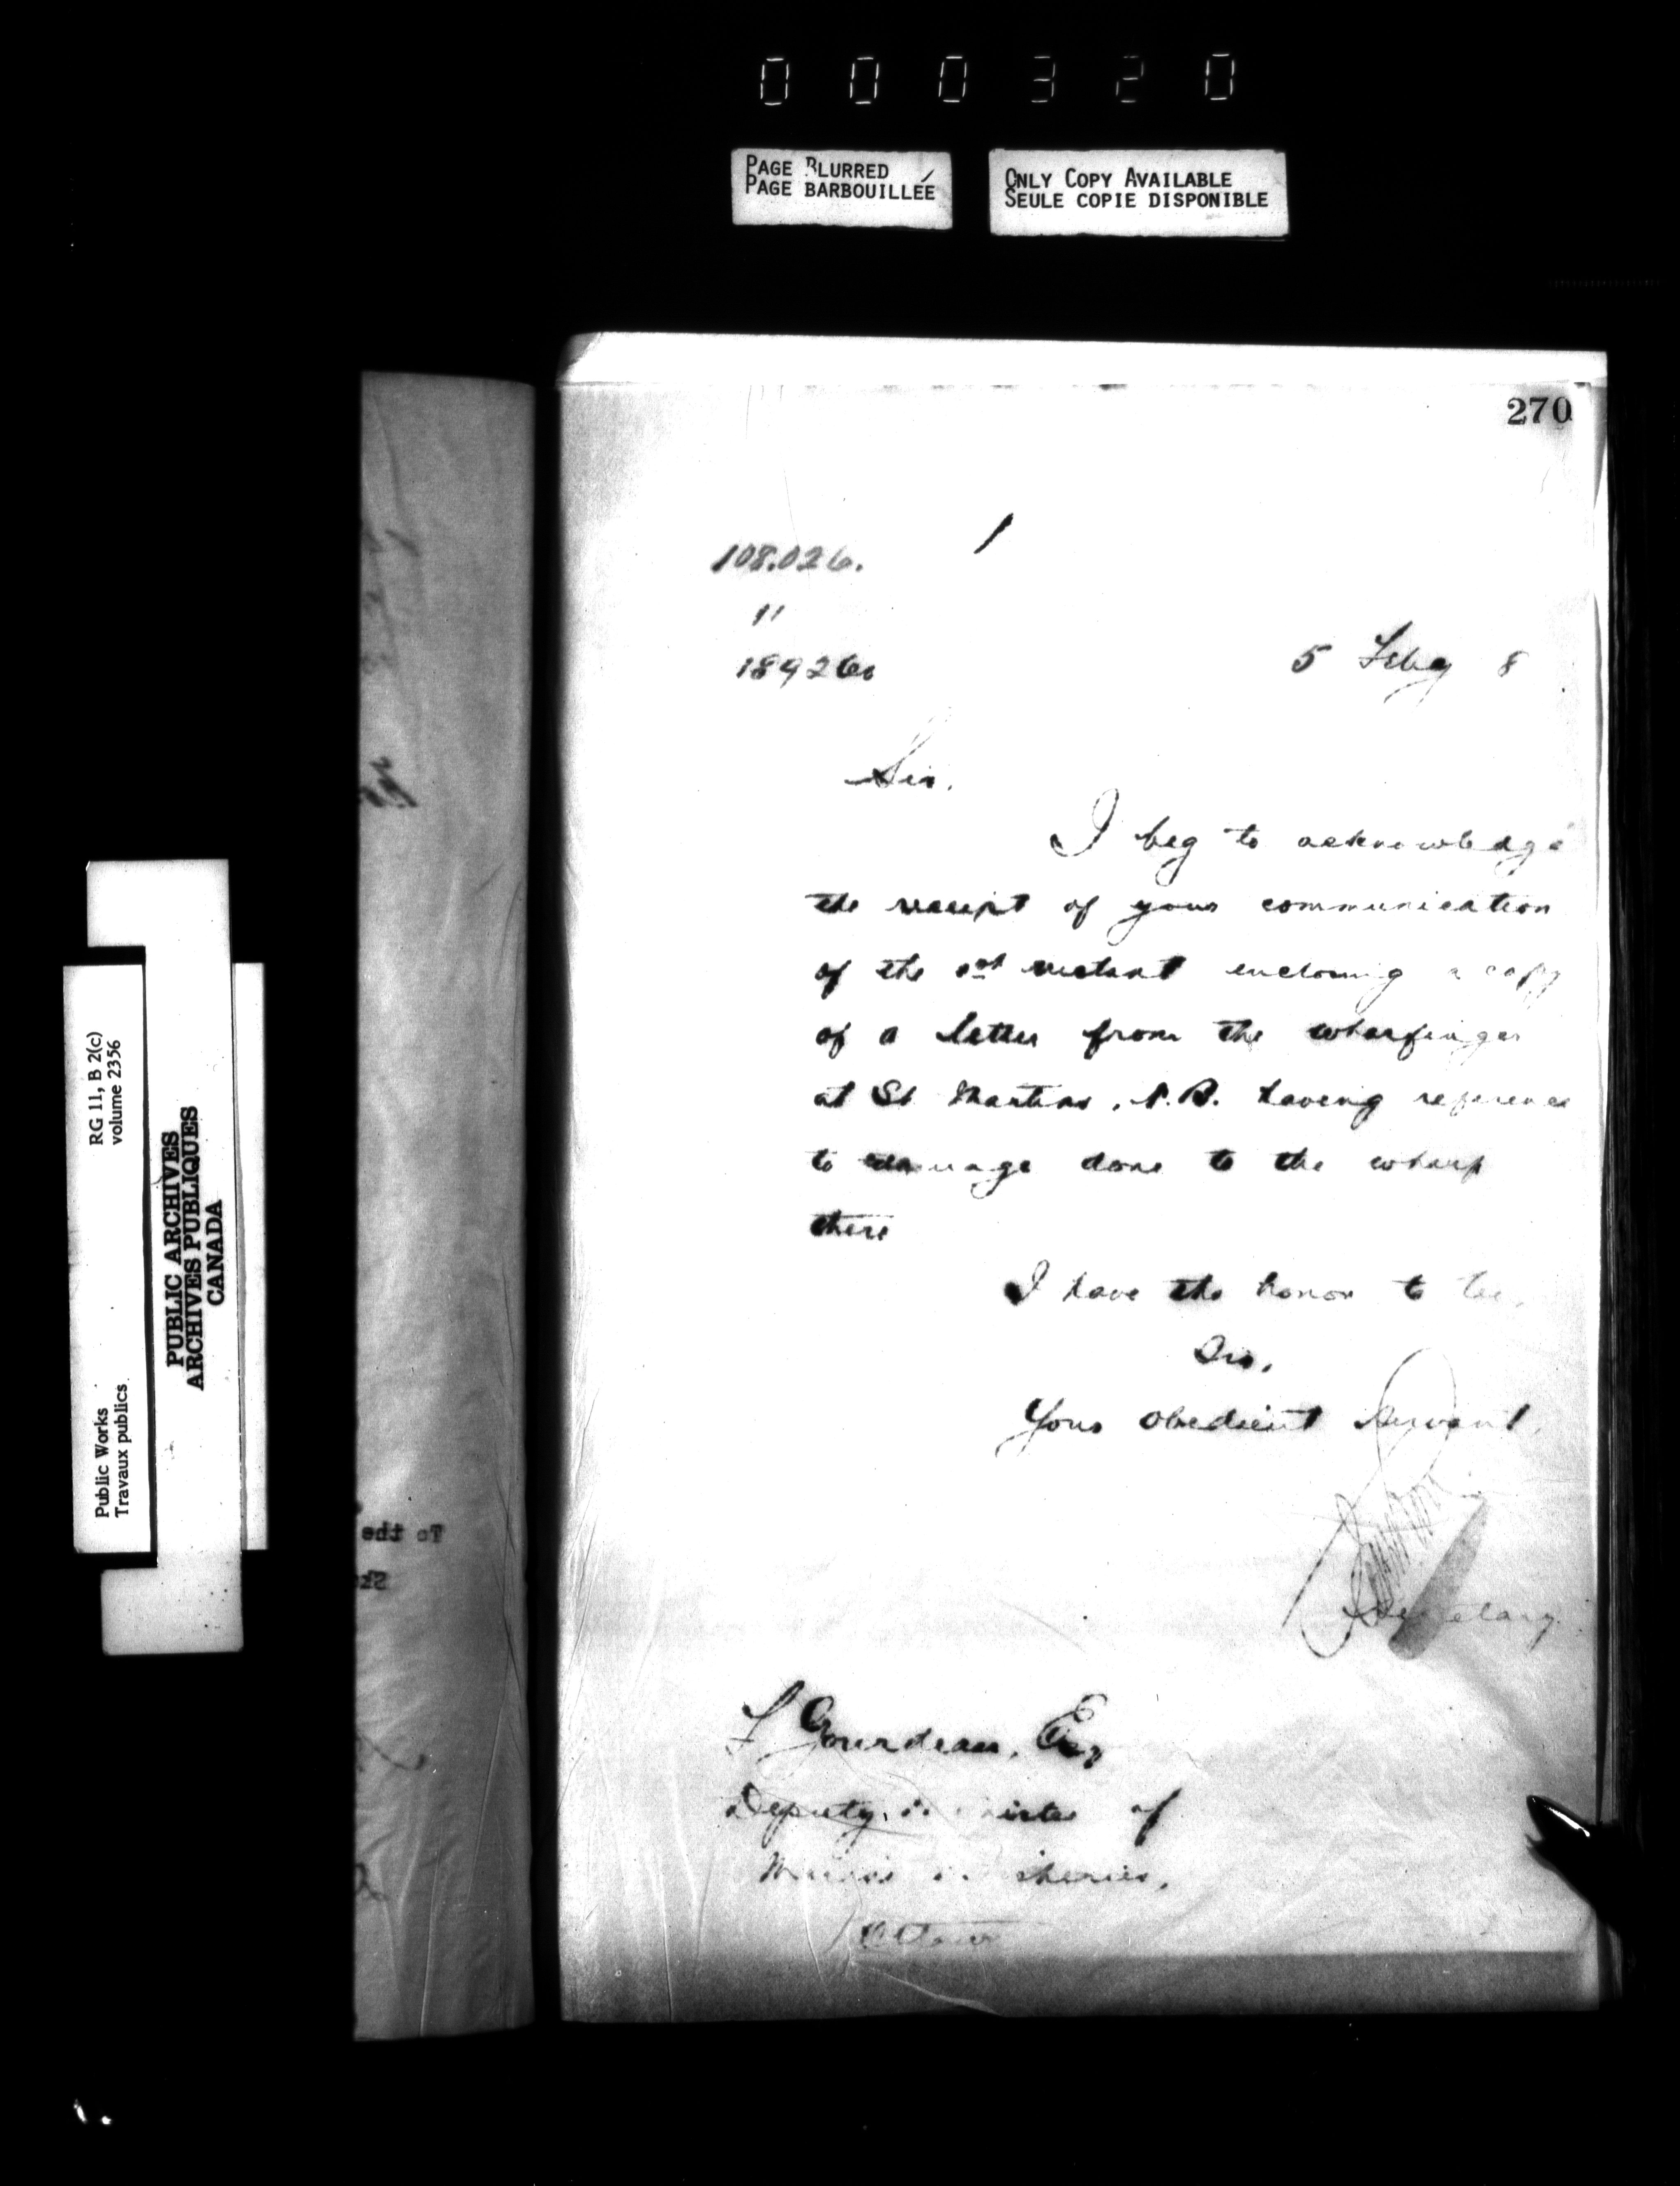 000320
PAGE BLURRED
PAGE BARBOUILLÉE
ONLY COPY AVAILABLE
SEULE COPIE DISPONIBLE
270
1
108.026.
"
189260
5 Feby 8
Sir,
I beg to acknowledge
the receipt of your communication
of the 1st instant enclosing a copy
of a letter from the wharfinger
at St Martins, N.B. having reference
to damage done to the wharf
there
I have the honor to be,
Sir,
Your obedient servant,
Secretary
F Gourdeau, Esq
Deputy of
Ottawa
RG 11, B 2(c)
volume 2356
Public Works
Travaux publics
PUBLIC ARCHIVES
ARCHIVES PUBLIQUES
CANADA